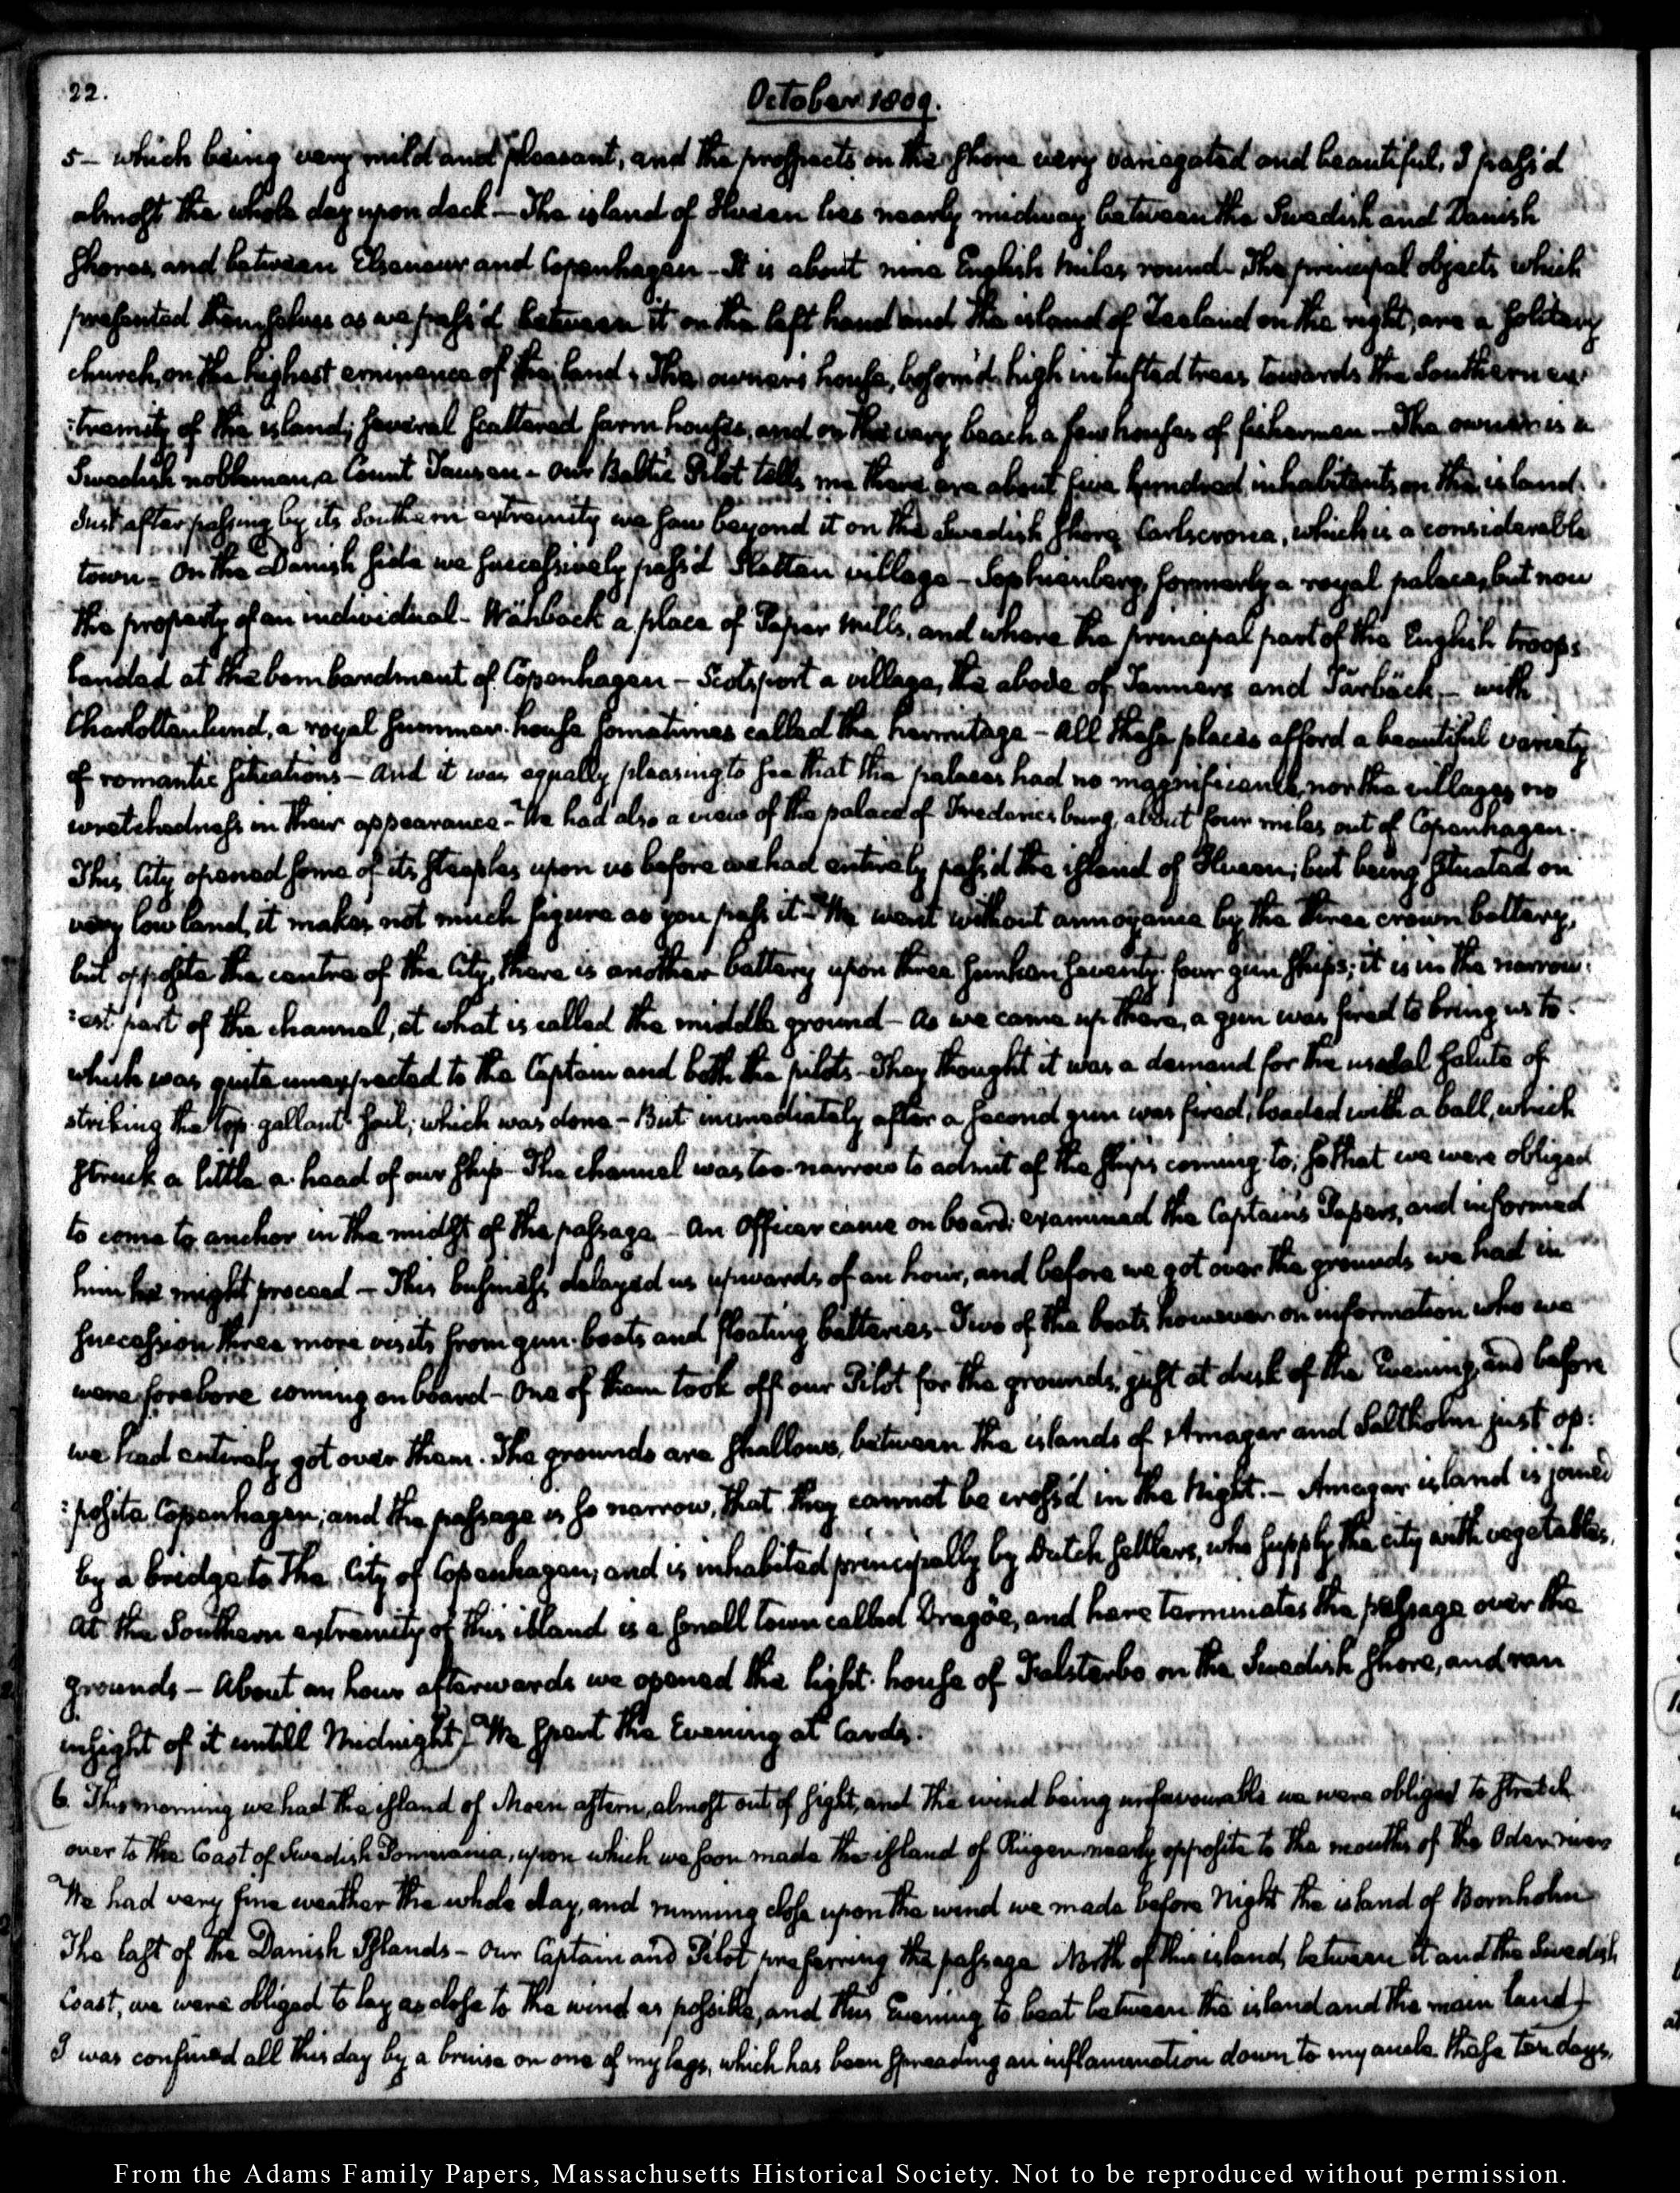 22.
October 1809.
5 — which being very mild and pleasant, and the prospects on the shore very variegated and beautiful, I pass'd
almost the whole day upon deck — The island of Hveen lies nearly midway between the Swedish and Danish
shores, and between Elseneur and Copenhagen — It is about nine English miles round. The principal objects which
presented themselves as we pass'd between it on the left hand and the island of Zealand on the right, are a solitary
church, on the highest eminence of the land; The owner's house, bosom'd high in tufted trees towards the Southern ex:
:tremity of the island; several scattered farm houses, and on the very beach a few houses of fishermen — The owner is a
Swedish nobleman, a Count — our Baltic Pilot tells me there are about five hundred inhabitants on the island.
Just after passing by its Southern extremity we saw beyond it on the Swedish shore Carlscrona, which is a considerable
town — On the Danish side we successively pass'd Slatten village — Sophienberg, formerly a royal palace, but now
the property of an individual — Wähback a place of Paper Mills, and where the principal part of the English troops
landed at the bombardment of Copenhagen — Scotsport a village, the abode of Tanners and Tarbäck — with
Charlottenlund, a royal summer-house sometimes called the hermitage — All these places afford a beautiful variety
of romantic situations — And it was equally pleasing to see that the palaces had no magnificence, nor the villages no
wretchedness in their appearance — We had also a view of the palace of Fredericsburg, about four miles out of Copenhagen.
This City opened some of its steeples upon us before we had entirely pass'd the island of Hveen; but being situated on
very low land, it makes not much figure as you pass it — We went without annoyance by the three crown battery,
but opposite the centre of the City, there is another battery upon three sunken seventy-four gun ships; it is in the narrow:
:est part of the channel, at what is called the middle ground — As we came up there, a gun was fired to bring us to:
which was quite unexpected to the Captain and both the pilots — They thought it was a demand for the usual salute of
striking the top-gallant-sail; which was done — But immediately after a second gun was fired, loaded with a ball, which
struck a little a-head of our ship — The channel was too narrow to admit of the ship's coming-to; so that we were obliged
to come to anchor in the midst of the passage — An Officer came on board, examined the Captain's Papers, and informed
him he might proceed — This business delayed us upwards of an hour, and before we got over the grounds we had in
succession three more visits from gun-boats and floating batteries — Two of the boats however on information who we
were forebore coming on board — One of them took off our Pilot for the grounds, just at dusk of the Evening, and before
we had entirely got over them. The grounds are shallows, between the islands of Amager and Saltholm just op:
:posite Copenhagen; and the passage is so narrow, that they cannot be cross'd in the Night. — Amager island is joined
by a bridge to the City of Copenhagen; and is inhabited principally by Dutch settlers, who supply the city with vegetables.
At the Southern extremity of this island is a small town called Dragöe, and here terminates the passage over the
grounds — About an hour afterwards we opened the light-house of Falsterbo on the Swedish shore, and ran
in sight of it untill Midnight. We spent the Evening at Cards.
6. This morning we had the island of Moen astern, almost out of sight, and the wind being unfavourable we were obliged to stretch
over to the Coast of Swedish Pomerania, upon which we soon made the island of Rügen nearly opposite to the mouths of the Oder river
We had very fine weather the whole day, and running close upon the wind we made before Night the island of Bornholm
The last of the Danish Islands — Our Captain and Pilot preferring the passage North of this island, between it and the Swedish
Coast, we were obliged to lay as close to the wind as possible, and this Evening to beat between the island and the main land.
I was confined all this day by a bruise on one of my legs, which has been spreading an inflammation down to my ancle these ten days.
From the Adams Family Papers, Massachusetts Historical Society. Not to be reproduced without permission.